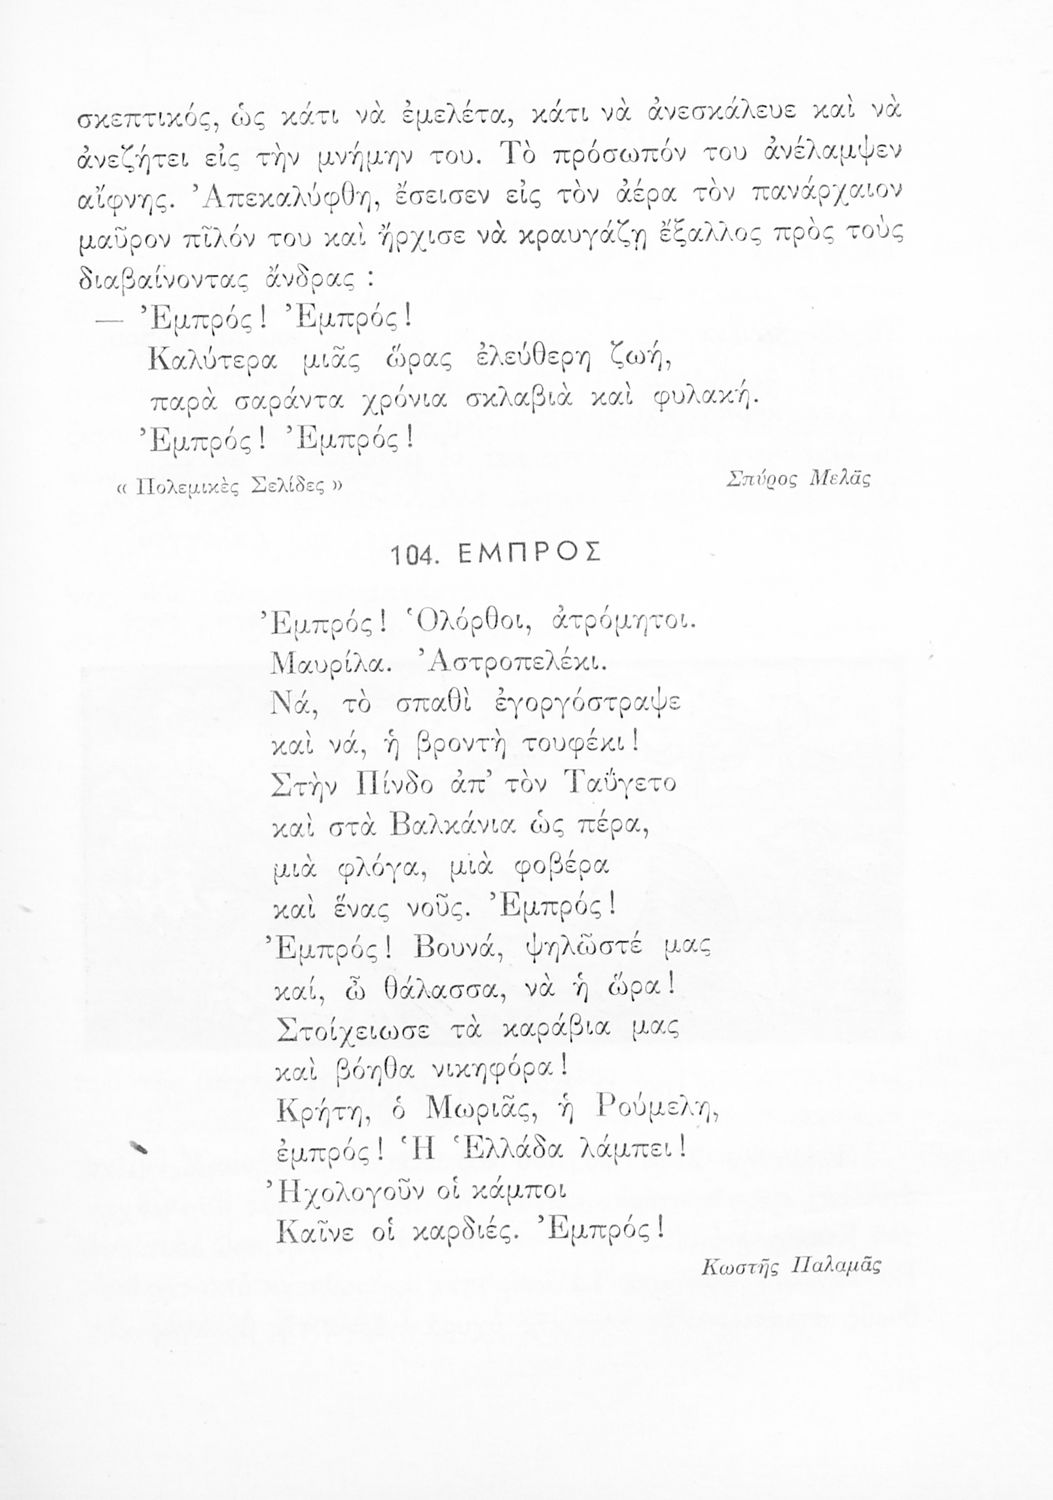 σκεπτικός, ὡς κάτι νὰ ἐμελέτα, κάτι νὰ ἀνεσκάλευε καὶ νὰ
ἀνεζήτει εἰς τὴν μνήμην του. Τὸ πρόσωπόν του ἀνέλαμψεν
αἴφνης. Ἀπεκαλύφθη, ἔσεισεν εἰς τὸν ἀέρα τὸν πανάρχαιον
μαῦρον πῖλόν του καὶ ἤρχισε νὰ κραυγάζῃ ἔξαλλος πρὸς τοὺς
διαβαίνοντας ἄνδρας :
— Ἐμπρός! Ἐμπρός!
Καλύτερα μιᾶς ὥρας ἐλεύθερη ζωή,
παρὰ σαράντα χρόνια σκλαβιὰ καὶ φυλακή.
Ἐμπρός! Ἐμπρός!
« Πολεμικὲς Σελίδες »
Σπύρος Μελᾶς
104. ΕΜΠΡΟΣ
Ἐμπρός! Ὁλόρθοι, ἀτρόμητοι.
Μαυρίλα. Ἀστροπελέκι.
Νά, τὸ σπαθὶ ἐγοργόστραψε
καὶ νά, ἡ βροντὴ τουφέκι!
Στὴν Πίνδο ἀπ’ τὸν Ταΰγετο
καὶ στὰ Βαλκάνια ὡς πέρα,
μιὰ φλόγα, μιὰ φοβέρα
καὶ ἕνας νοῦς. Ἐμπρός!
Ἐμπρός! Βουνά, ψηλῶστέ μας
καί, ὦ θάλασσα, νὰ ἡ ὥρα!
Στοίχειωσε τὰ καράβια μας
καὶ βόηθα νικηφόρα!
Κρήτη, ὁ Μωριᾶς, ἡ Ρούμελη,
ἐμπρός! Ἡ Ἑλλάδα λάμπει!
Ἠχολογοῦν οἱ κάμποι
Καῖνε οἱ καρδιές. Ἐμπρός!
Κωστῆς Παλαμᾶς